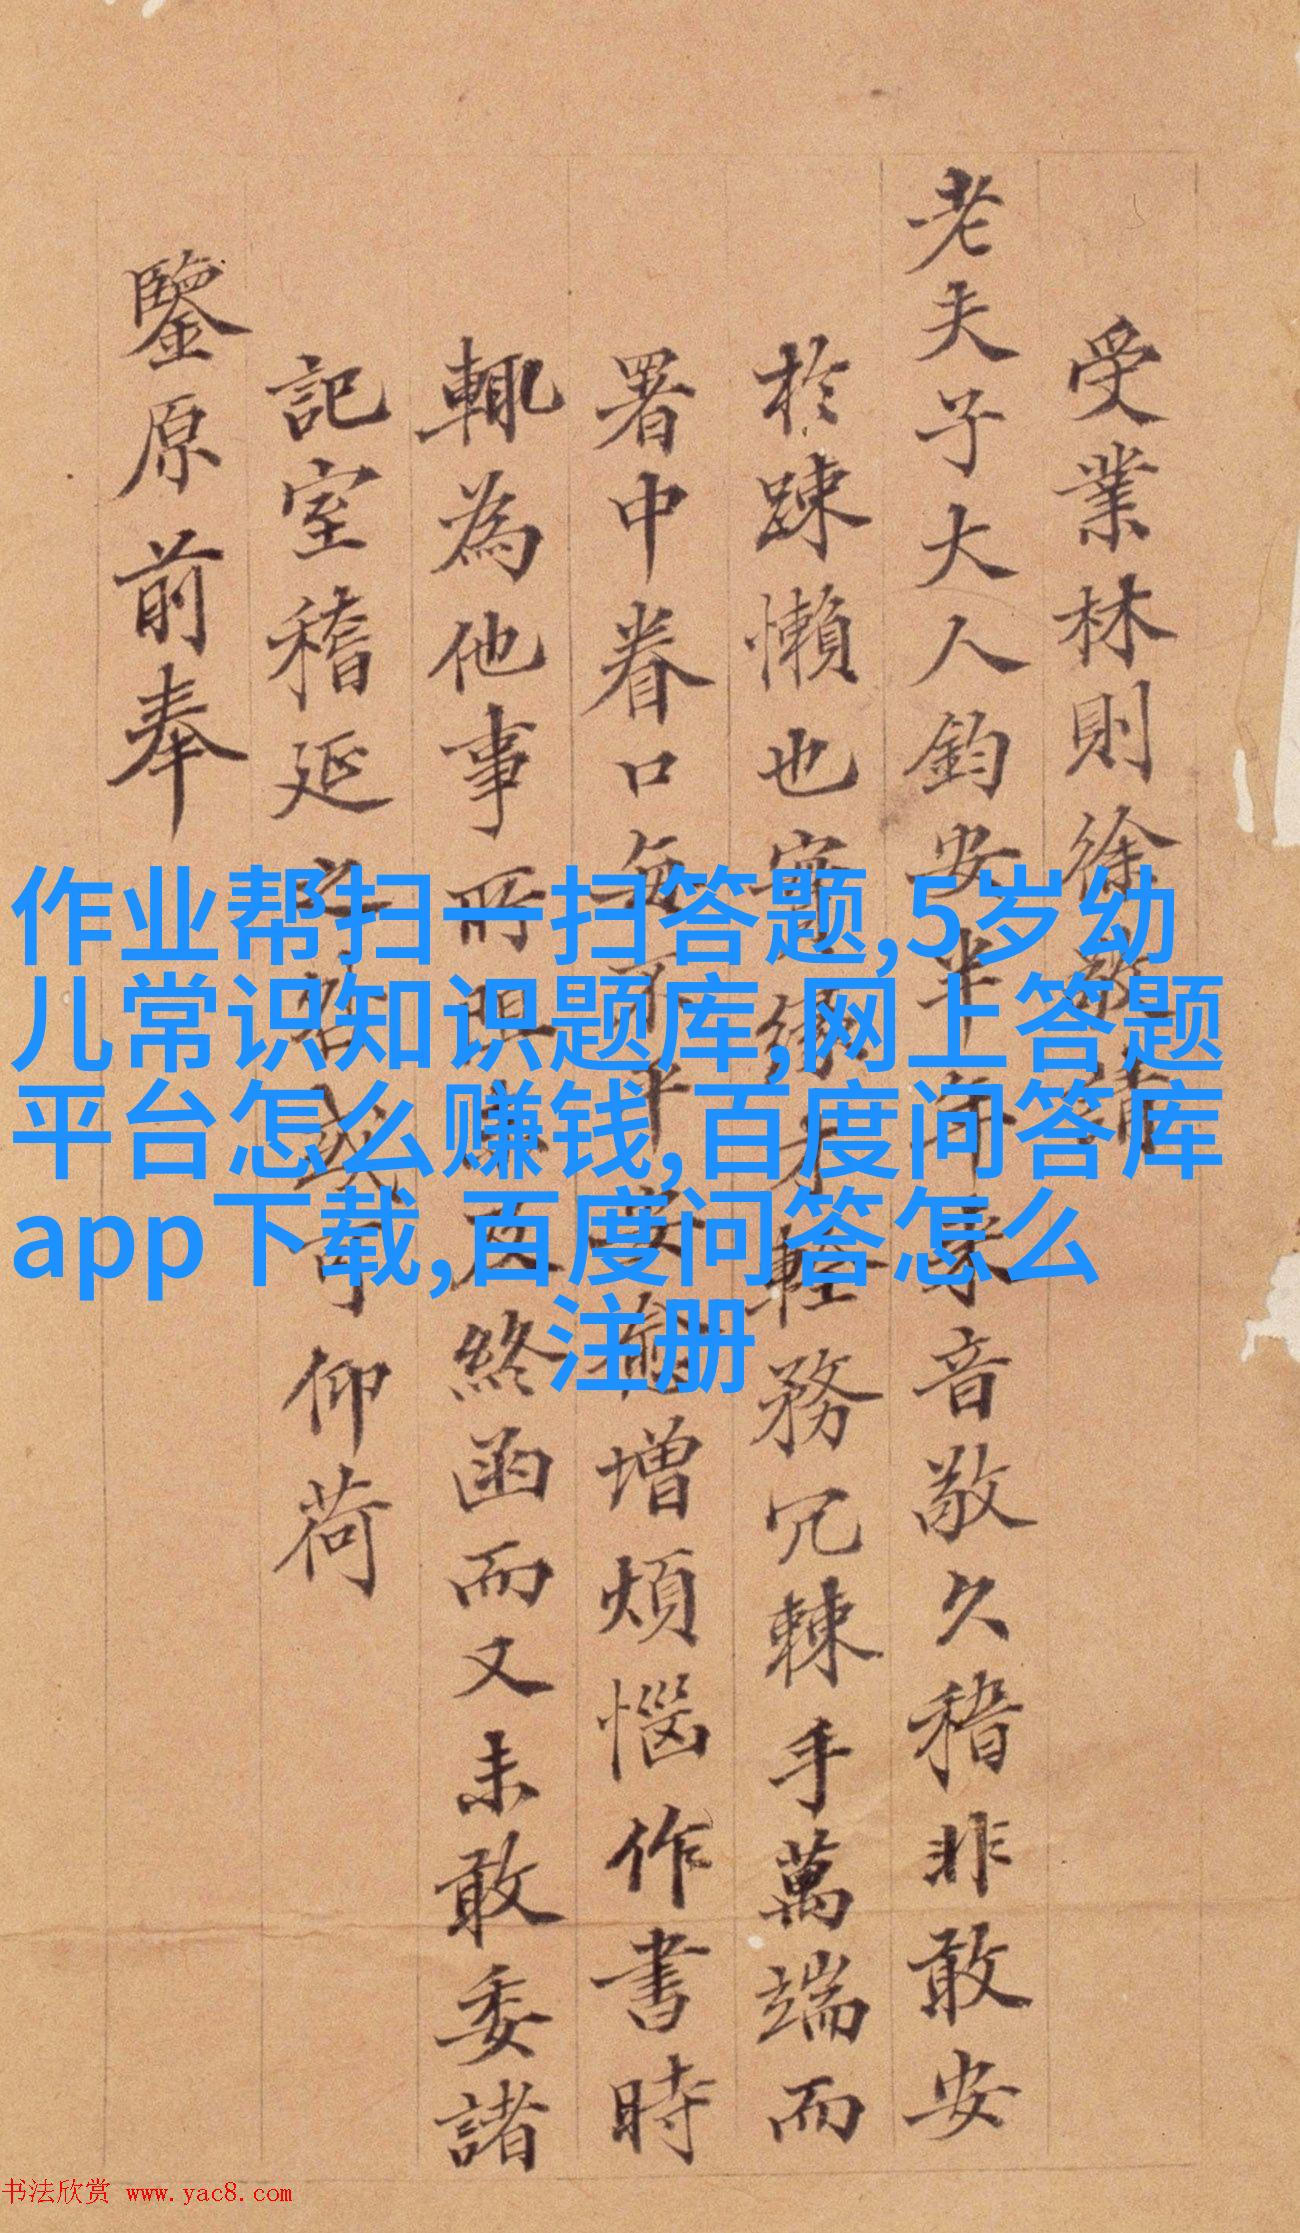 受業林則徐敬請
老夫子大人鈞安半年來音敬久稽非敢安
於踈懶也實緣才輕務冗棘手萬端而
署中眷口每不平安愈增煩惱作書時
輒為他事所阻未及終函而又未敢委諸
記室稽延之咎或可仰荷
鑒原前奉
作业帮扫一扫答题,5岁幼
儿常识知识题库,网上答题
平台怎么赚钱,百度问答库
app下载,百度问答怎么
注册
书法欣赏 www.yac8.com